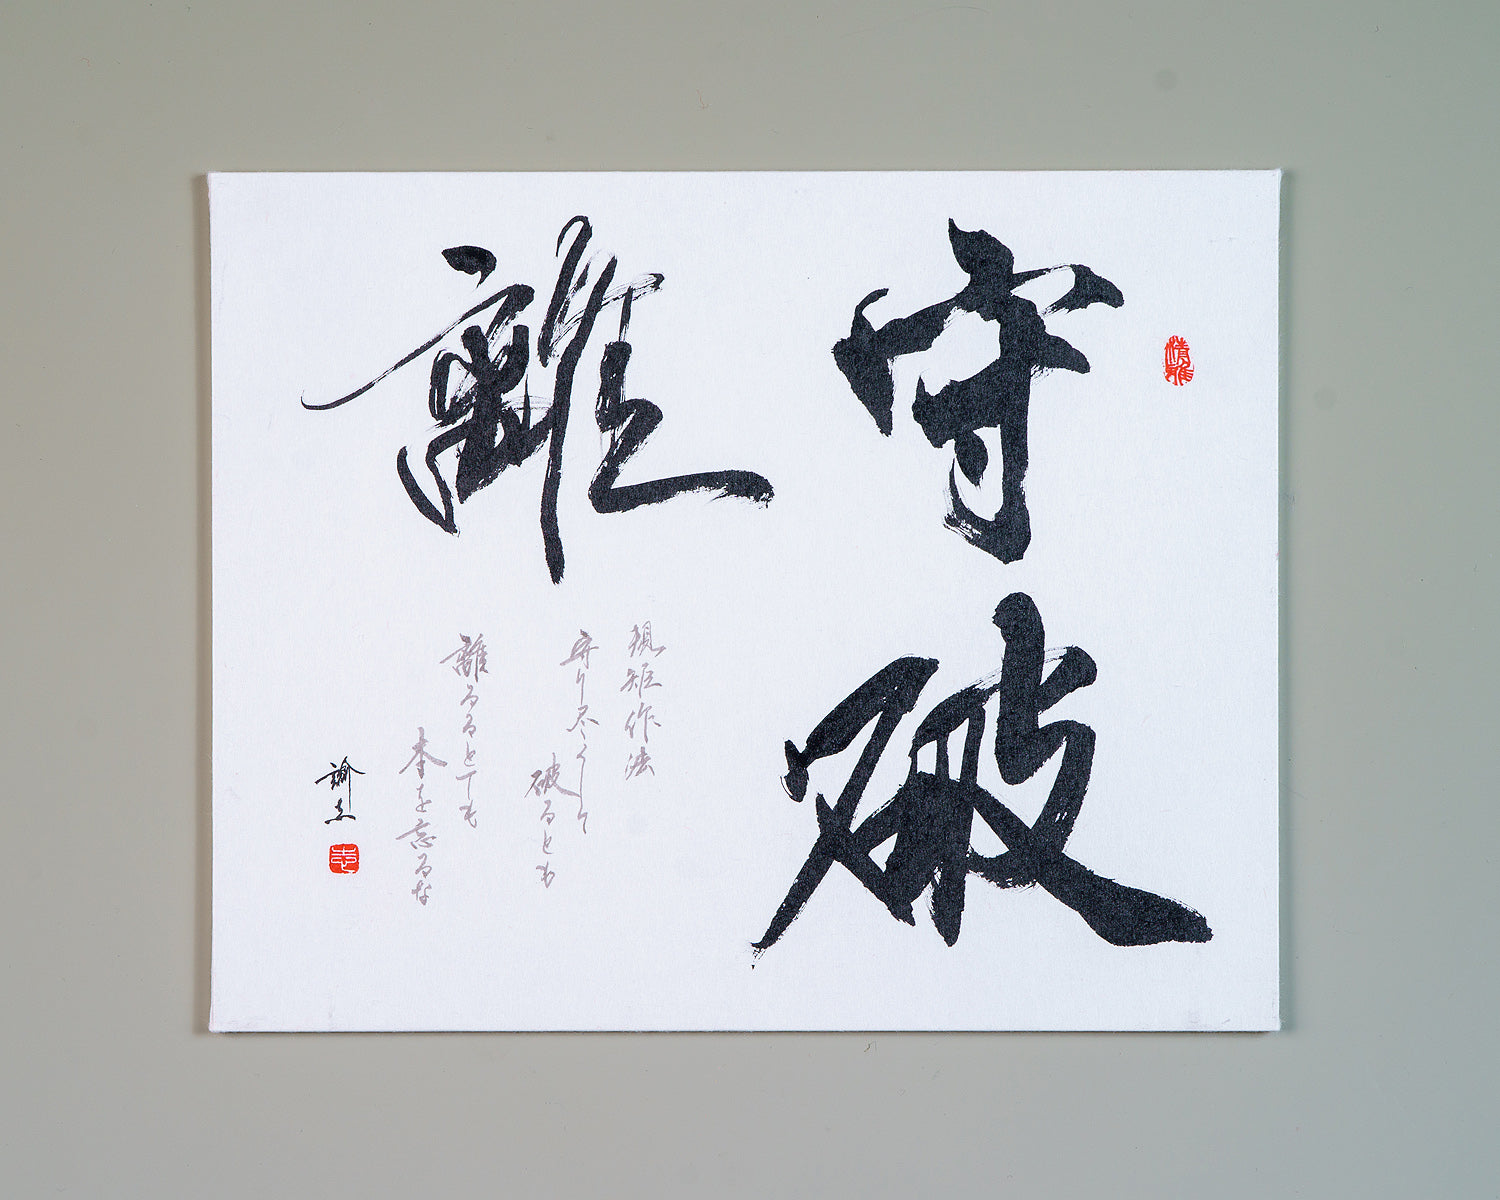 守
破
離
規矩作法
守り尽くして
破るとも
離るるとても
本を忘るな